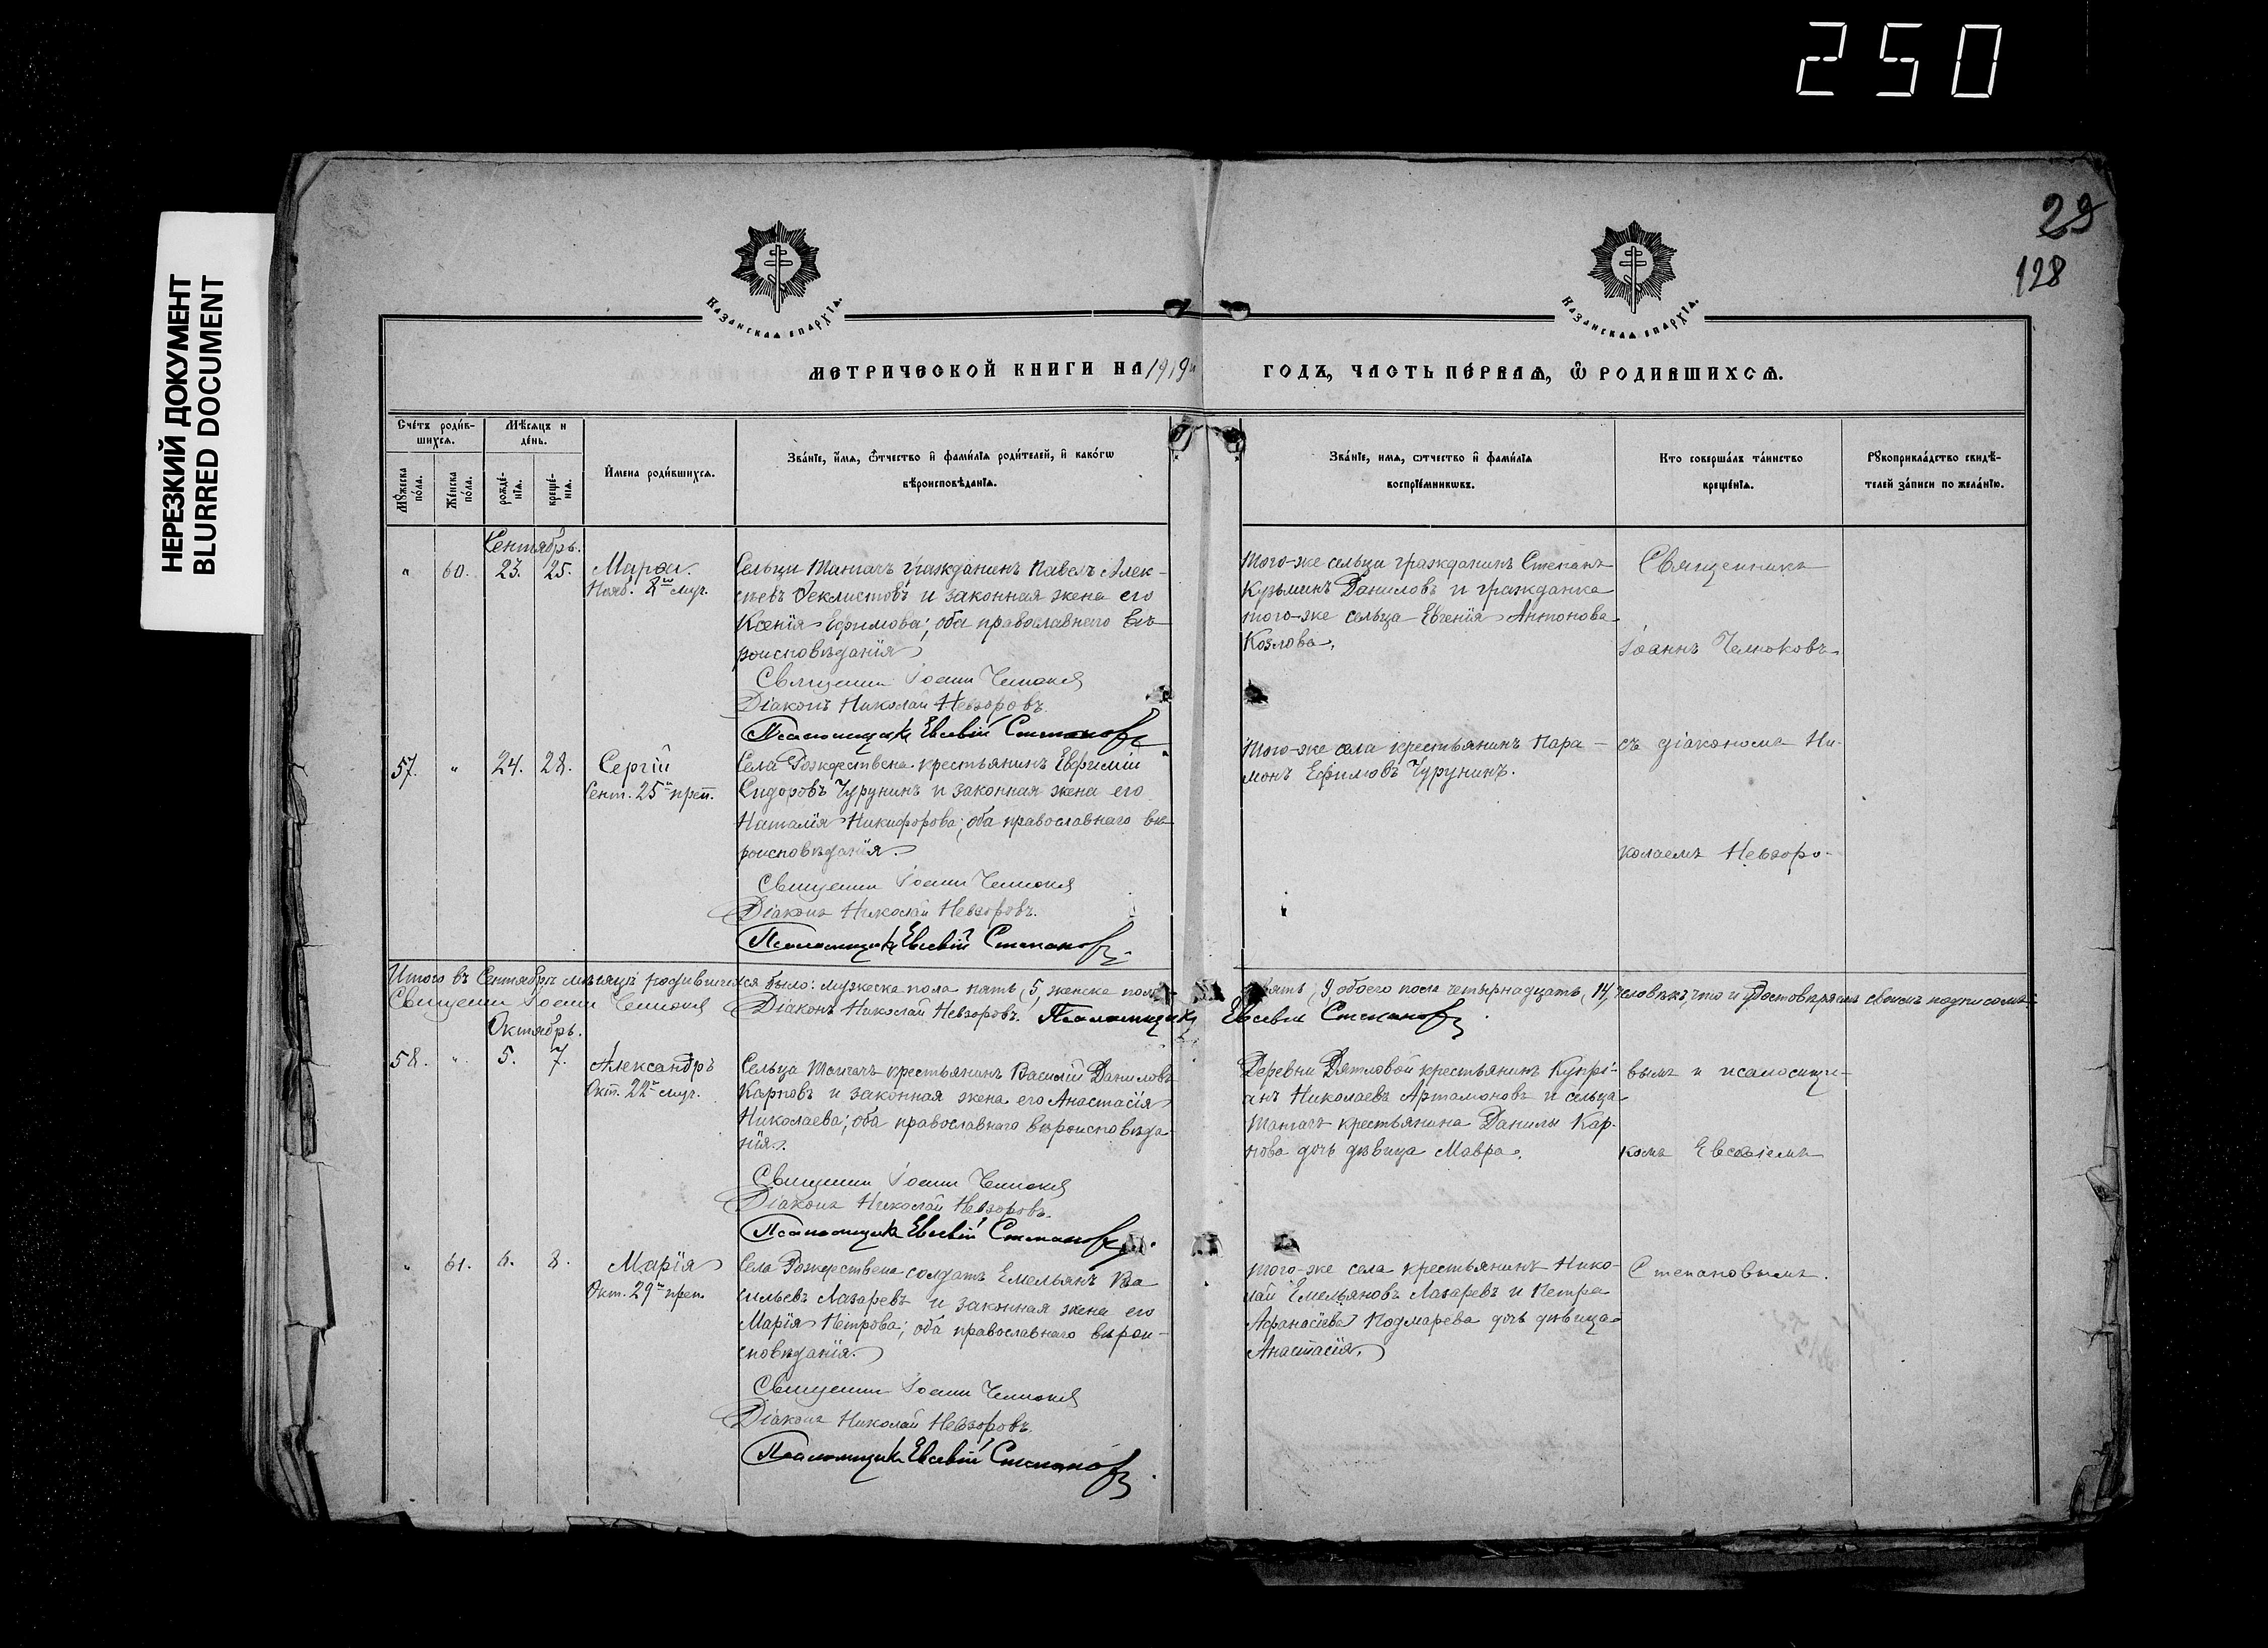 250
НЕРЕЗКИЙ ДОКУМЕНТ
BLURRED DOCUMENT
29
128
КАЗАНСКАѦ ЕПАРХІѦ.
КАЗАНСКАѦ ЕПАРХІѦ.
МЕТРИЧЕСКОЙ КНИГИ НА 1919й ГОДЪ, ЧАСТЬ ПЕ́РВАѦ, Ѿ РОДИВШИХСѦ.
Сче́тъ роди́в-
шихсѧ.
Мѣ́сѧцъ и
де́нь.
Мꙋ́жеска
по́ла.
Же́нска
по́ла.
рожде́-
нїѧ.
креще́-
нїѧ.
И҆мена роди́вшихсѧ.
Зва́нїе, и҆́мѧ, ѻ҆́тчество и҆ фами́лїѧ роди́телей, и҆ како́гѡ
вѣроисповѣ́данїѧ.
Зва́нїе, имѧ, ѻтчество и҆ фами́лїѧ
воспрїе́мникѡвъ.
Кто соверша́лъ та́инство
креще́нїѧ.
Рꙋкоприкла́дство свидѣ́-
телей за́писи по жела́нїю.
Сентябрь.
" 60. 23. 25. Марѳа.
Нояб. 8го муч.
Сельца Тангачъ гражданинъ Павелъ Алек-
сѣевъ Ѳеклистовъ и законная жена его
Ксенія Ефимова; оба православнаго вѣ-
роисповѣданія
Священникъ Іоаннъ
Діаконъ Николай Невзоровъ.
Псаломщикъ Евсевій Степановъ
Того-же сельца гражданинъ Степанъ
Кузьминъ Даниловъ и гражданка
того-же сельца Евгенія Антонова
Козлова.
Священникъ
Іоаннъ
57. " 24. 28. Сергій
Сент. 25го преп.
Села Рождествена крестьянинъ Евфимій
Сидоровъ Чурунинъ и законная жена его
Наталія Никифорова; оба православнаго вѣ-
роисповѣданія.
Священникъ Іоаннъ
Діаконъ Николай Невзоровъ.
Псаломщикъ Евсевій Степановъ
Того-же села крестьянинъ Пара-
монъ Ефимовъ Чурунинъ.
съ діакономъ Ни-
колаемъ Невзоро-
Итого въ Сентябрѣ мѣсяцѣ родившихся было: мужеска пола пять, 5, женска пола девять, 9, обоего пола четырнадцать, 14, человѣкъ, что и удостовѣряемъ своимъ подписомъ:
Священникъ Іоаннъ Діаконъ Николай Невзоровъ. Псаломщикъ Евсевій Степановъ
Октябрь.
58. " 5. 7. Александръ
Окт. 22го муч.
Сельца Тангачъ крестьянинъ Василій Даниловъ
Карповъ и законная жена его Анастасія
Николаева; оба православнаго вѣроисповѣда-
нія.
Священникъ Іоаннъ
Діаконъ Николай Невзоровъ.
Псаломщикъ Евсевій Степановъ
Деревни Дятловой крестьянинъ Купрі-
анъ Николаевъ Артамоновъ и сельца
Тангачъ крестьянина Данилы Кар-
пова дочь дѣвица Мавра.
вымъ и псаломщи-
комъ Евсевіемъ
" 61. 6. 8. Марія
Окт. 29го преп.
Села Рождествена солдатъ Емельянъ Ва
сильевъ Лазаревъ и законная жена его
Марія Петрова; оба православнаго вѣрои-
сповѣданія.
Священникъ Іоаннъ
Діаконъ Николай Невзоровъ.
Псаломщикъ Евсевій Степановъ
Того-же села крестьянинъ Нико-
лай Емельяновъ Лазаревъ и Петра
Афанасіева Подмарева дочь дѣвица
Анастасія.
Степановымъ.